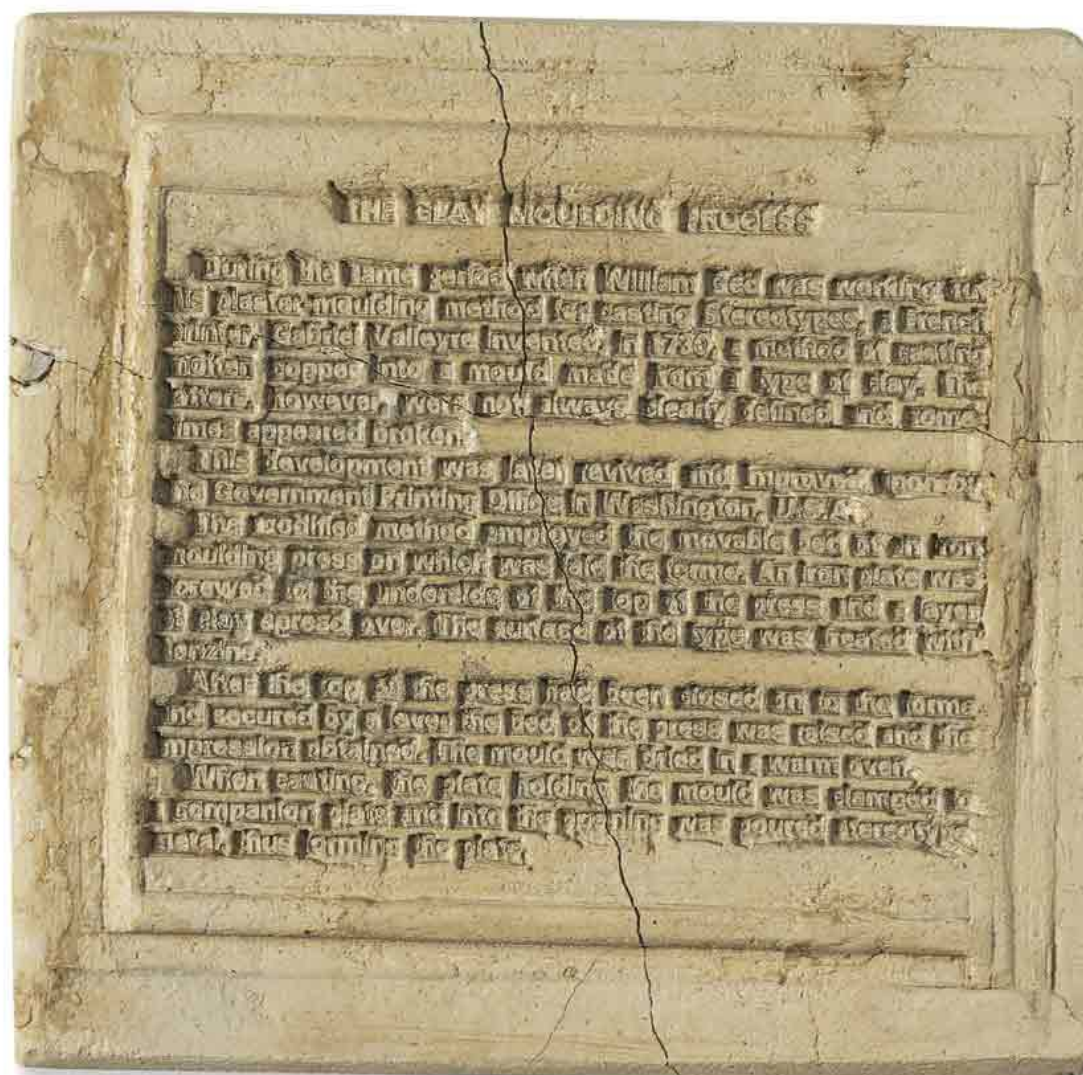 THE CLAY MOULDING PROCESS
During the same period when William Ged was working on
his plaster-moulding method for casting stereotypes, a French
printer, Gabriel Valleyre invented, in 1730, a method of casting
molten copper into a mould made from a type of clay. The
after, however, were not always clearly defined and some-
times appeared broken.
This development was later revived and improved upon by
the Government Printing Office in Washington, U.S.A.
The modified method employed the movable bed of an iron
moulding press on which was laid the forme. An iron plate was
screwed to the underside of the top of the press and a layer
of clay spread over. The surface of the type was treated with
benzine.
After the top of the press had been closed on to the forme
and secured by a lever the bed of the press was raised and the
impression obtained. The mould was dried in a warm oven.
When casting, the plate holding the mould was clamped to
a companion plate and into the opening was poured stereotype
metal, thus forming the plate.